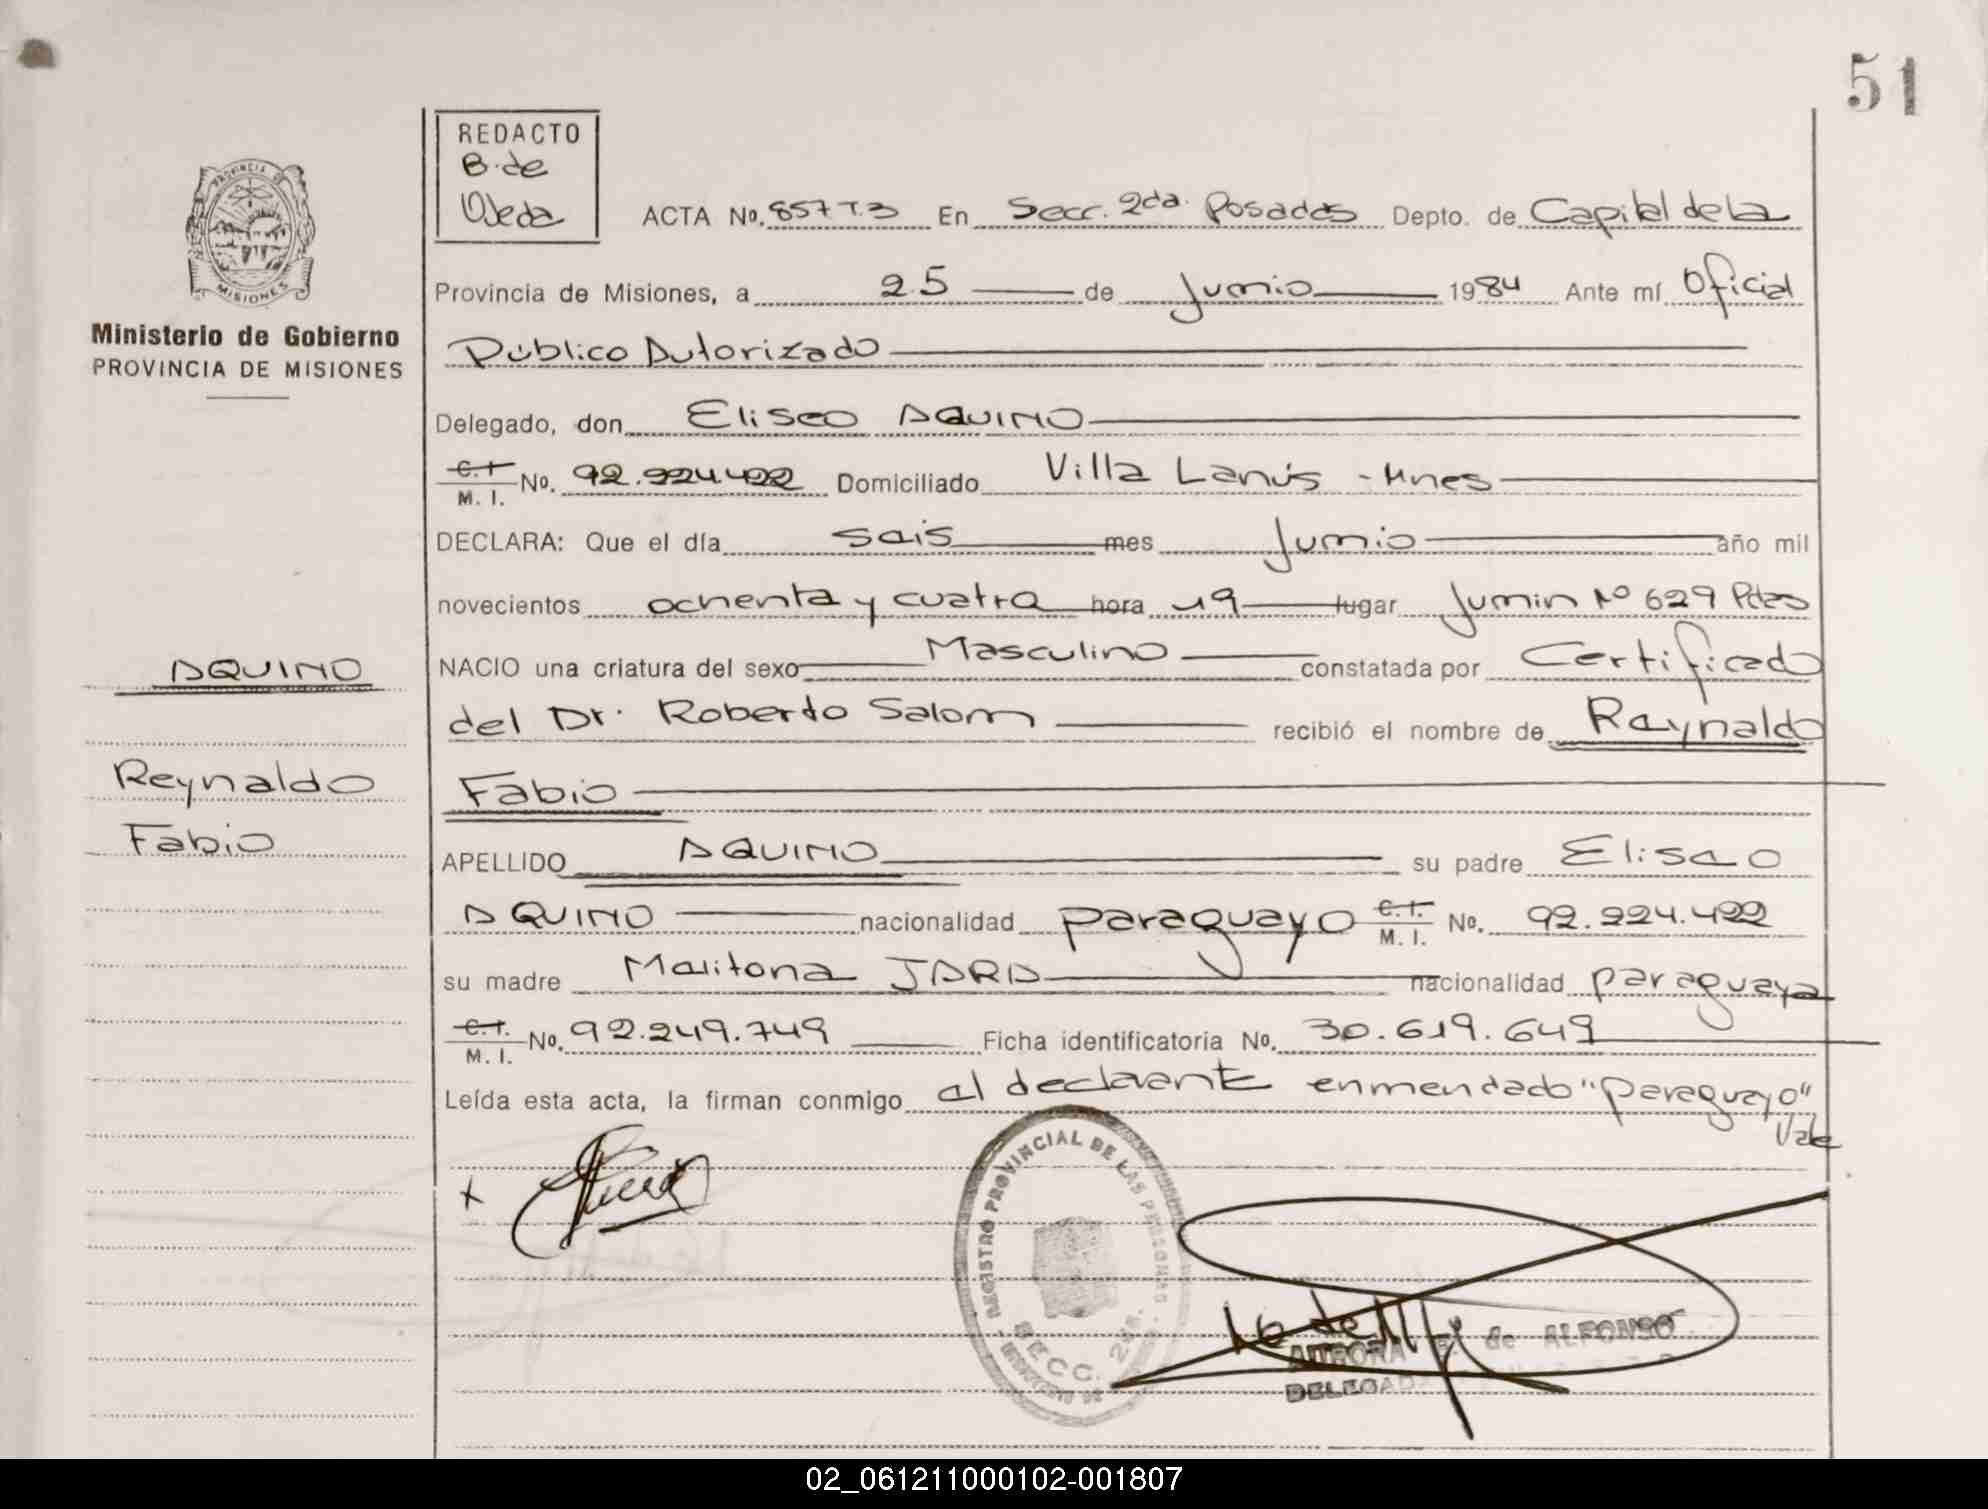 51
REDACTO
B. de
Ojeda
ACTA No. 857 T.3 En Secc. 2da. Posadas Depto. de Capital de la
PROVINCIA DE
MISIONES
Provincia de Misiones, a 25 de Junio 1984 Ante mí Oficial
Ministerio de Gobierno
PROVINCIA DE MISIONES
Público Autorizado
Delegado, don Eliseo AQUINO
C.I.
M. I. No. 92.224.422 Domiciliado Villa Lanús - Mnes
DECLARA: Que el día seis mes Junio año mil
novecientos ochenta y cuatro hora 19 lugar Junin Nº 629 Pdas
AQUINO
NACIO una criatura del sexo Masculino constatada por Certificado
del Dr. Roberto Salom recibió el nombre de Reynaldo
Reynaldo
Fabio
Fabio
APELLIDO AQUINO su padre Eliseo
AQUINO nacionalidad paraguayo C.I.
M. I. No. 92.224.422
su madre JARA nacionalidad paraguaya
C.I.
M. I. No. 92.249.749 Ficha identificatoria No. 30.619.649
Leída esta acta, la firman conmigo el declarante enmendado "paraguayo"
Vale
x
REGISTRO PROVINCIAL DE LAS PERSONAS
SECC. 2da.
AURORA de ALFONSO
DELEGADA
02_061211000102-001807